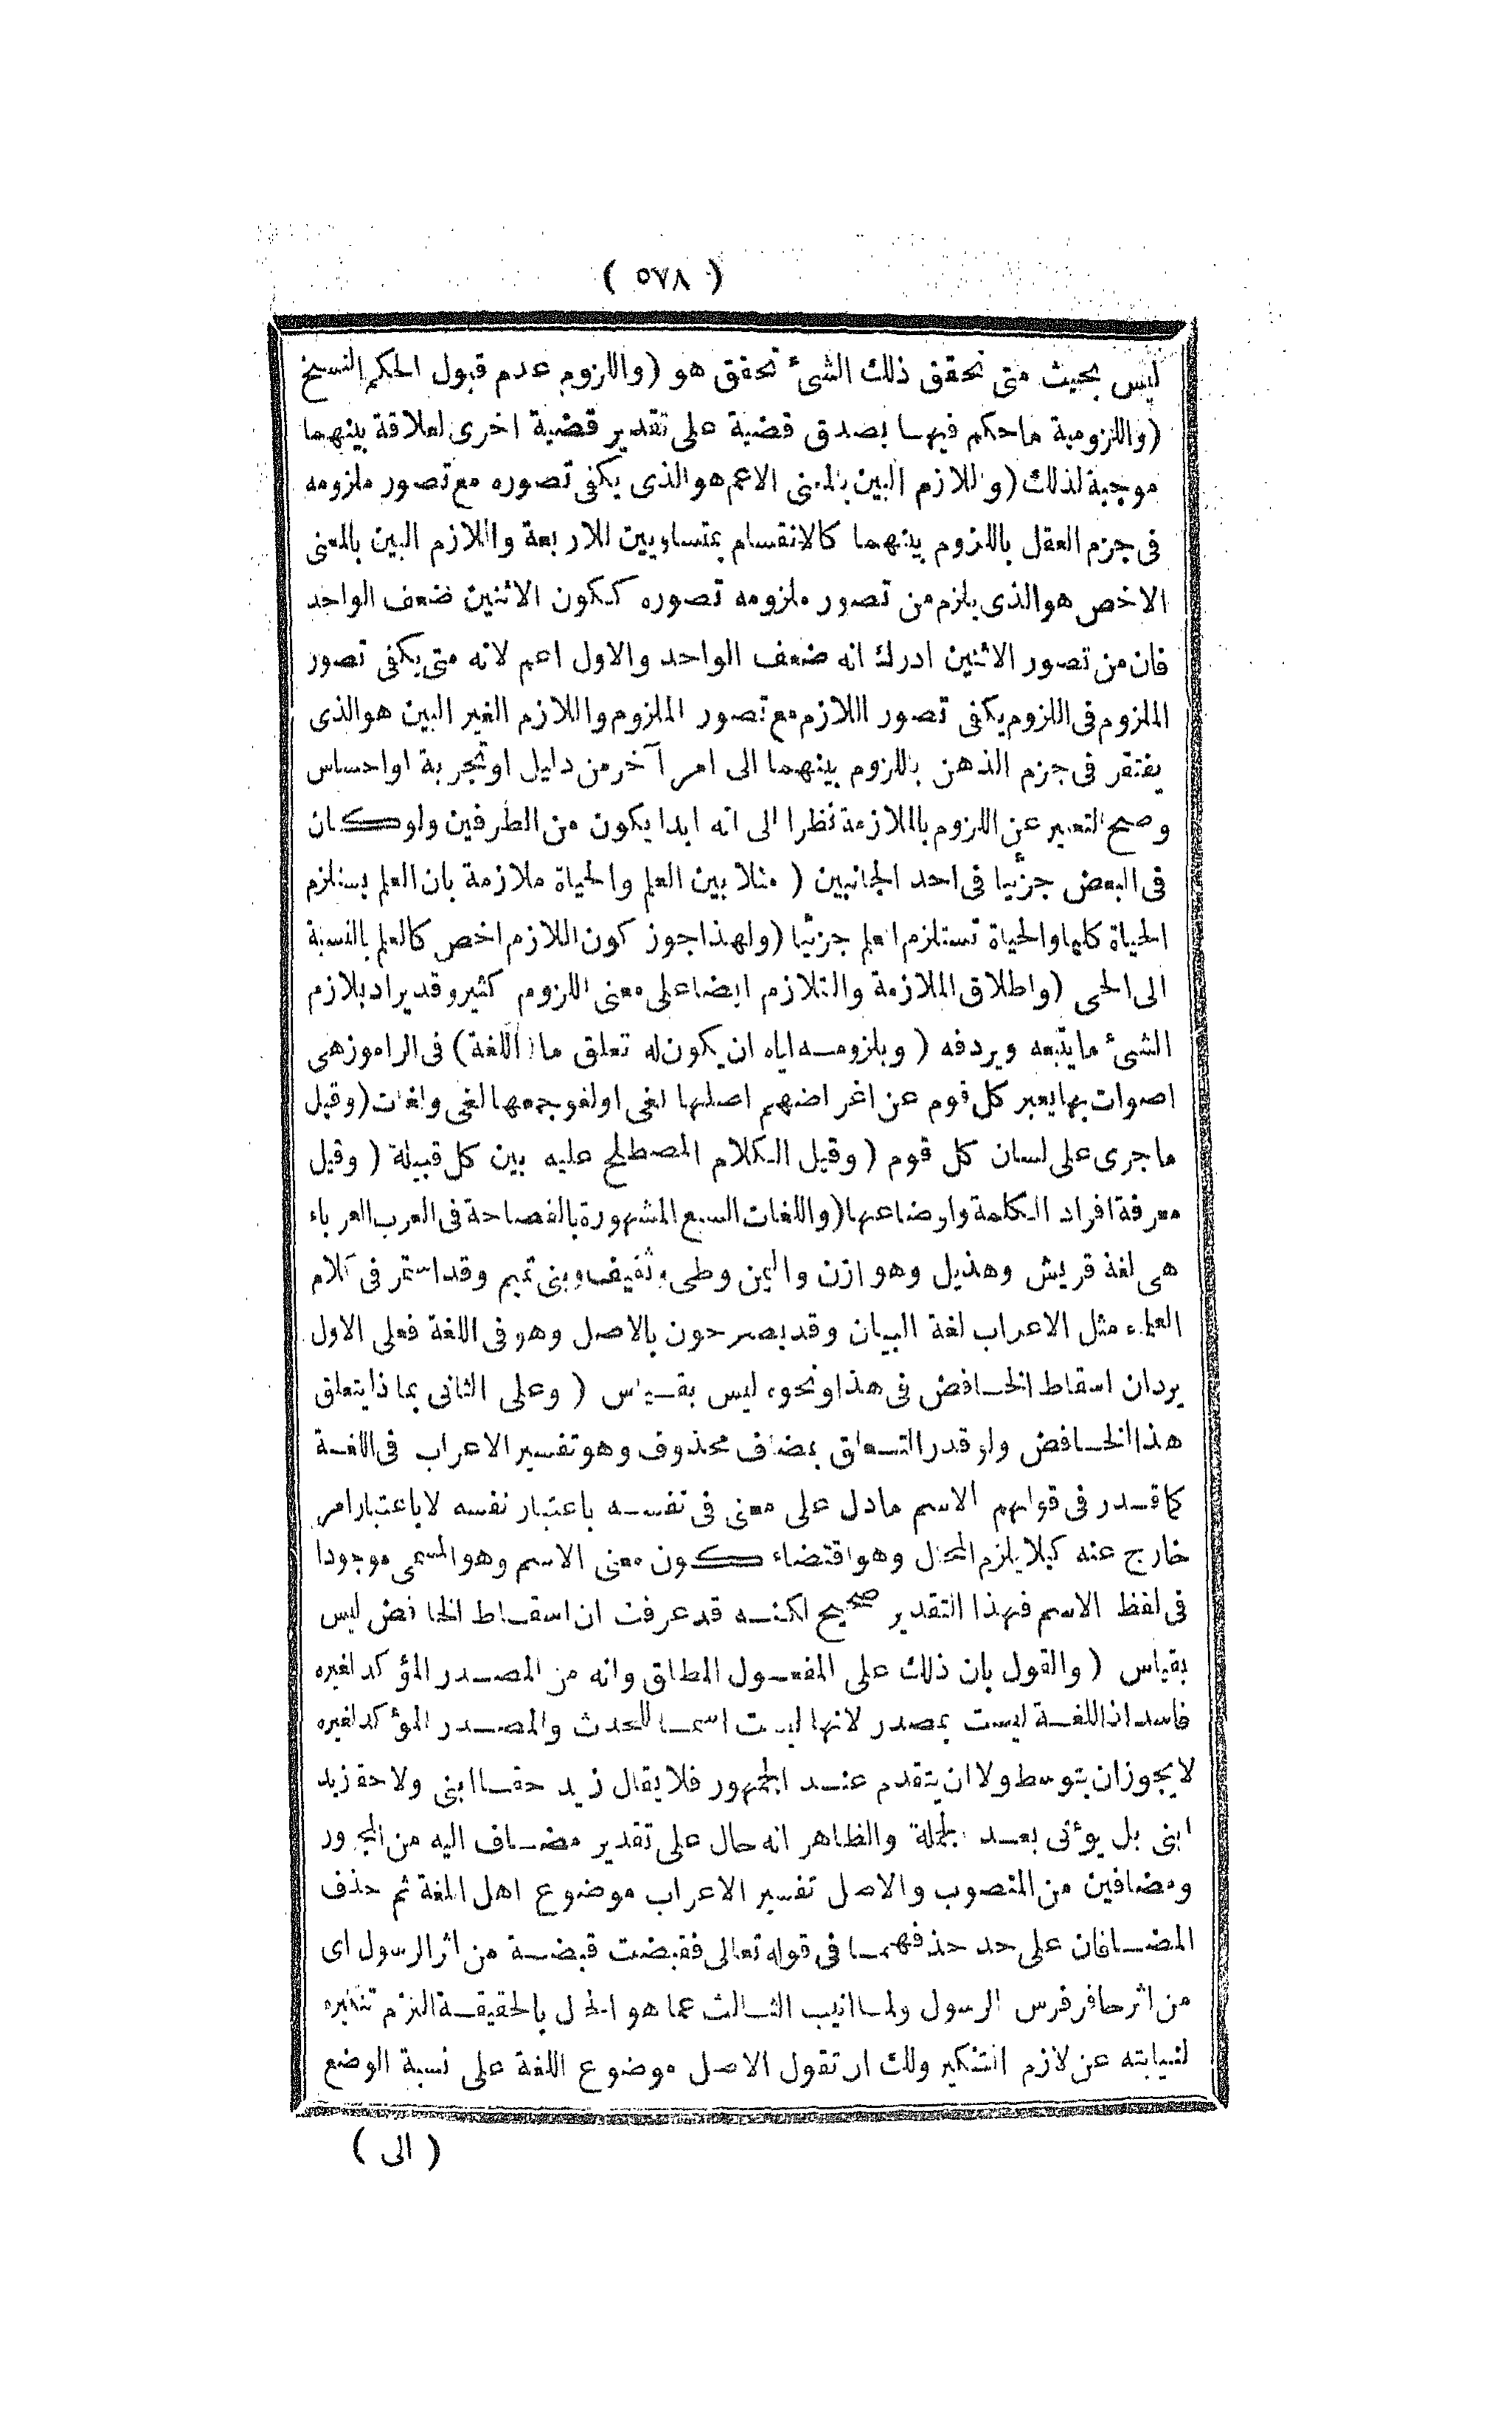 ( ٥٧٨ )
ليس بحيث متى تحقق ذلك الشئ تحقق هو (واللزوم عدم قبول الحكم النسخ
(واللزومية ماحكم فيها بصدق قضية على تقدير قضية اخرى لعلاقة بينهما
موجبة لذلك (واللازم البين بالمعنى الاعم هوالذى يكفى تصوره مع تصور ملزومه
فى جزم العقل باللزوم بينهما كالانقسام بمتساويين للاربعة واللازم البين بالمعنى
الاخص هوالذى يلزم من تصور ملزومه تصوره ككون الاثنين ضعف الواحد
فان من تصور الاثنين ادرك انه ضعف الواحد والاول اعم لانه متى يكفى تصور
الملزوم فى اللزوم يكفى تصور اللازم مع تصور الملزوم واللازم الغير البين هوالذى
يفتقر فى جزم الذهن باللزوم بينهما الى امر آخر من دليل اوتجربة اواحساس
وصح التعبير عن اللزوم بالملازمة نظرا الى انه ابدا يكون من الطرفين ولوكان
فى البعض جزئيا فى احد الجانبين ( مثلا بين العلم والحياة ملازمة بان العلم يستلزم
الحياة كليا والحياة تستلزم العلم جزئيا (ولهذا جوز كون اللازم اخص كالعلم بالنسبة
الى الحى (واطلاق الملازمة والتلازم ايضا على معنى اللزوم كثير وقد يراد بلازم
الشئ ما يتبعه ويردفه ( وبلزومه اياه ان يكون له تعلق ما (اللغة) فى الراموز هى
اصوات بها يعبر كل قوم عن اغراضهم اصلها لغى اولغو جمعها لغى ولغات (وقيل
ما جرى على لسان كل قوم ( وقيل الكلام المصطلح عليه بين كل قبيلة ( وقيل
معرفة افراد الكلمة واوضاعها (واللغات السبع المشهورة بالفصاحة فى العرب العرباء
هى لغة قريش وهذيل وهوازن واليمن وطى وثقيف وبنى تميم وقد استمر فى كلام
العلماء مثل الاعراب لغة البيان وقد يصرحون بالاصل وهو فى اللغة فعلى الاول
يردان اسقاط الخافض فى هذا ونحوه ليس بقياس ( وعلى الثانى بماذا يتعلق
هذا الخافض ولو قدر التعلق بمضاف محذوف وهو تفسير الاعراب فى اللغة
كما قدر فى قولهم الاسم مادل على معنى فى نفسه باعتبار نفسه لا باعتبار امر
خارج عنه كيلا يلزم المحال وهو اقتضاء كون معنى الاسم وهو المسمى موجودا
فى لفظ الاسم فهذا التقدير صحيح لكنه قد عرفت ان اسقاط الخافض ليس
بقياس ( والقول بان ذلك على المفعول المطلق وانه من المصدر المؤكد لغيره
فاسد اذ اللغة ليست بمصدر لانها ليست اسما للحدث والمصدر المؤكد لغيره
لا يجوز ان يتوسط ولا ان يتقدم عند الجمهور فلا يقال زيد حقا ابنى ولا حقا زيد
ابنى بل يؤتى بعد الجملة والظاهر انه حال على تقدير مضاف اليه من المجرور
ومضافين من المنصوب والاصل تفسير الاعراب موضوع اهل اللغة ثم حذف
المضافان على حد حذفهما فى قوله تعالى فقبضت قبضة من اثر الرسول اى
من اثر حافر فرس الرسول ولما انيب الثالث عما هو الحال بالحقيقة التزم تنكيره
لنيابته عن لازم التنكير ولك ان تقول الاصل موضوع اللغة على نسبة الوضع
( الى )